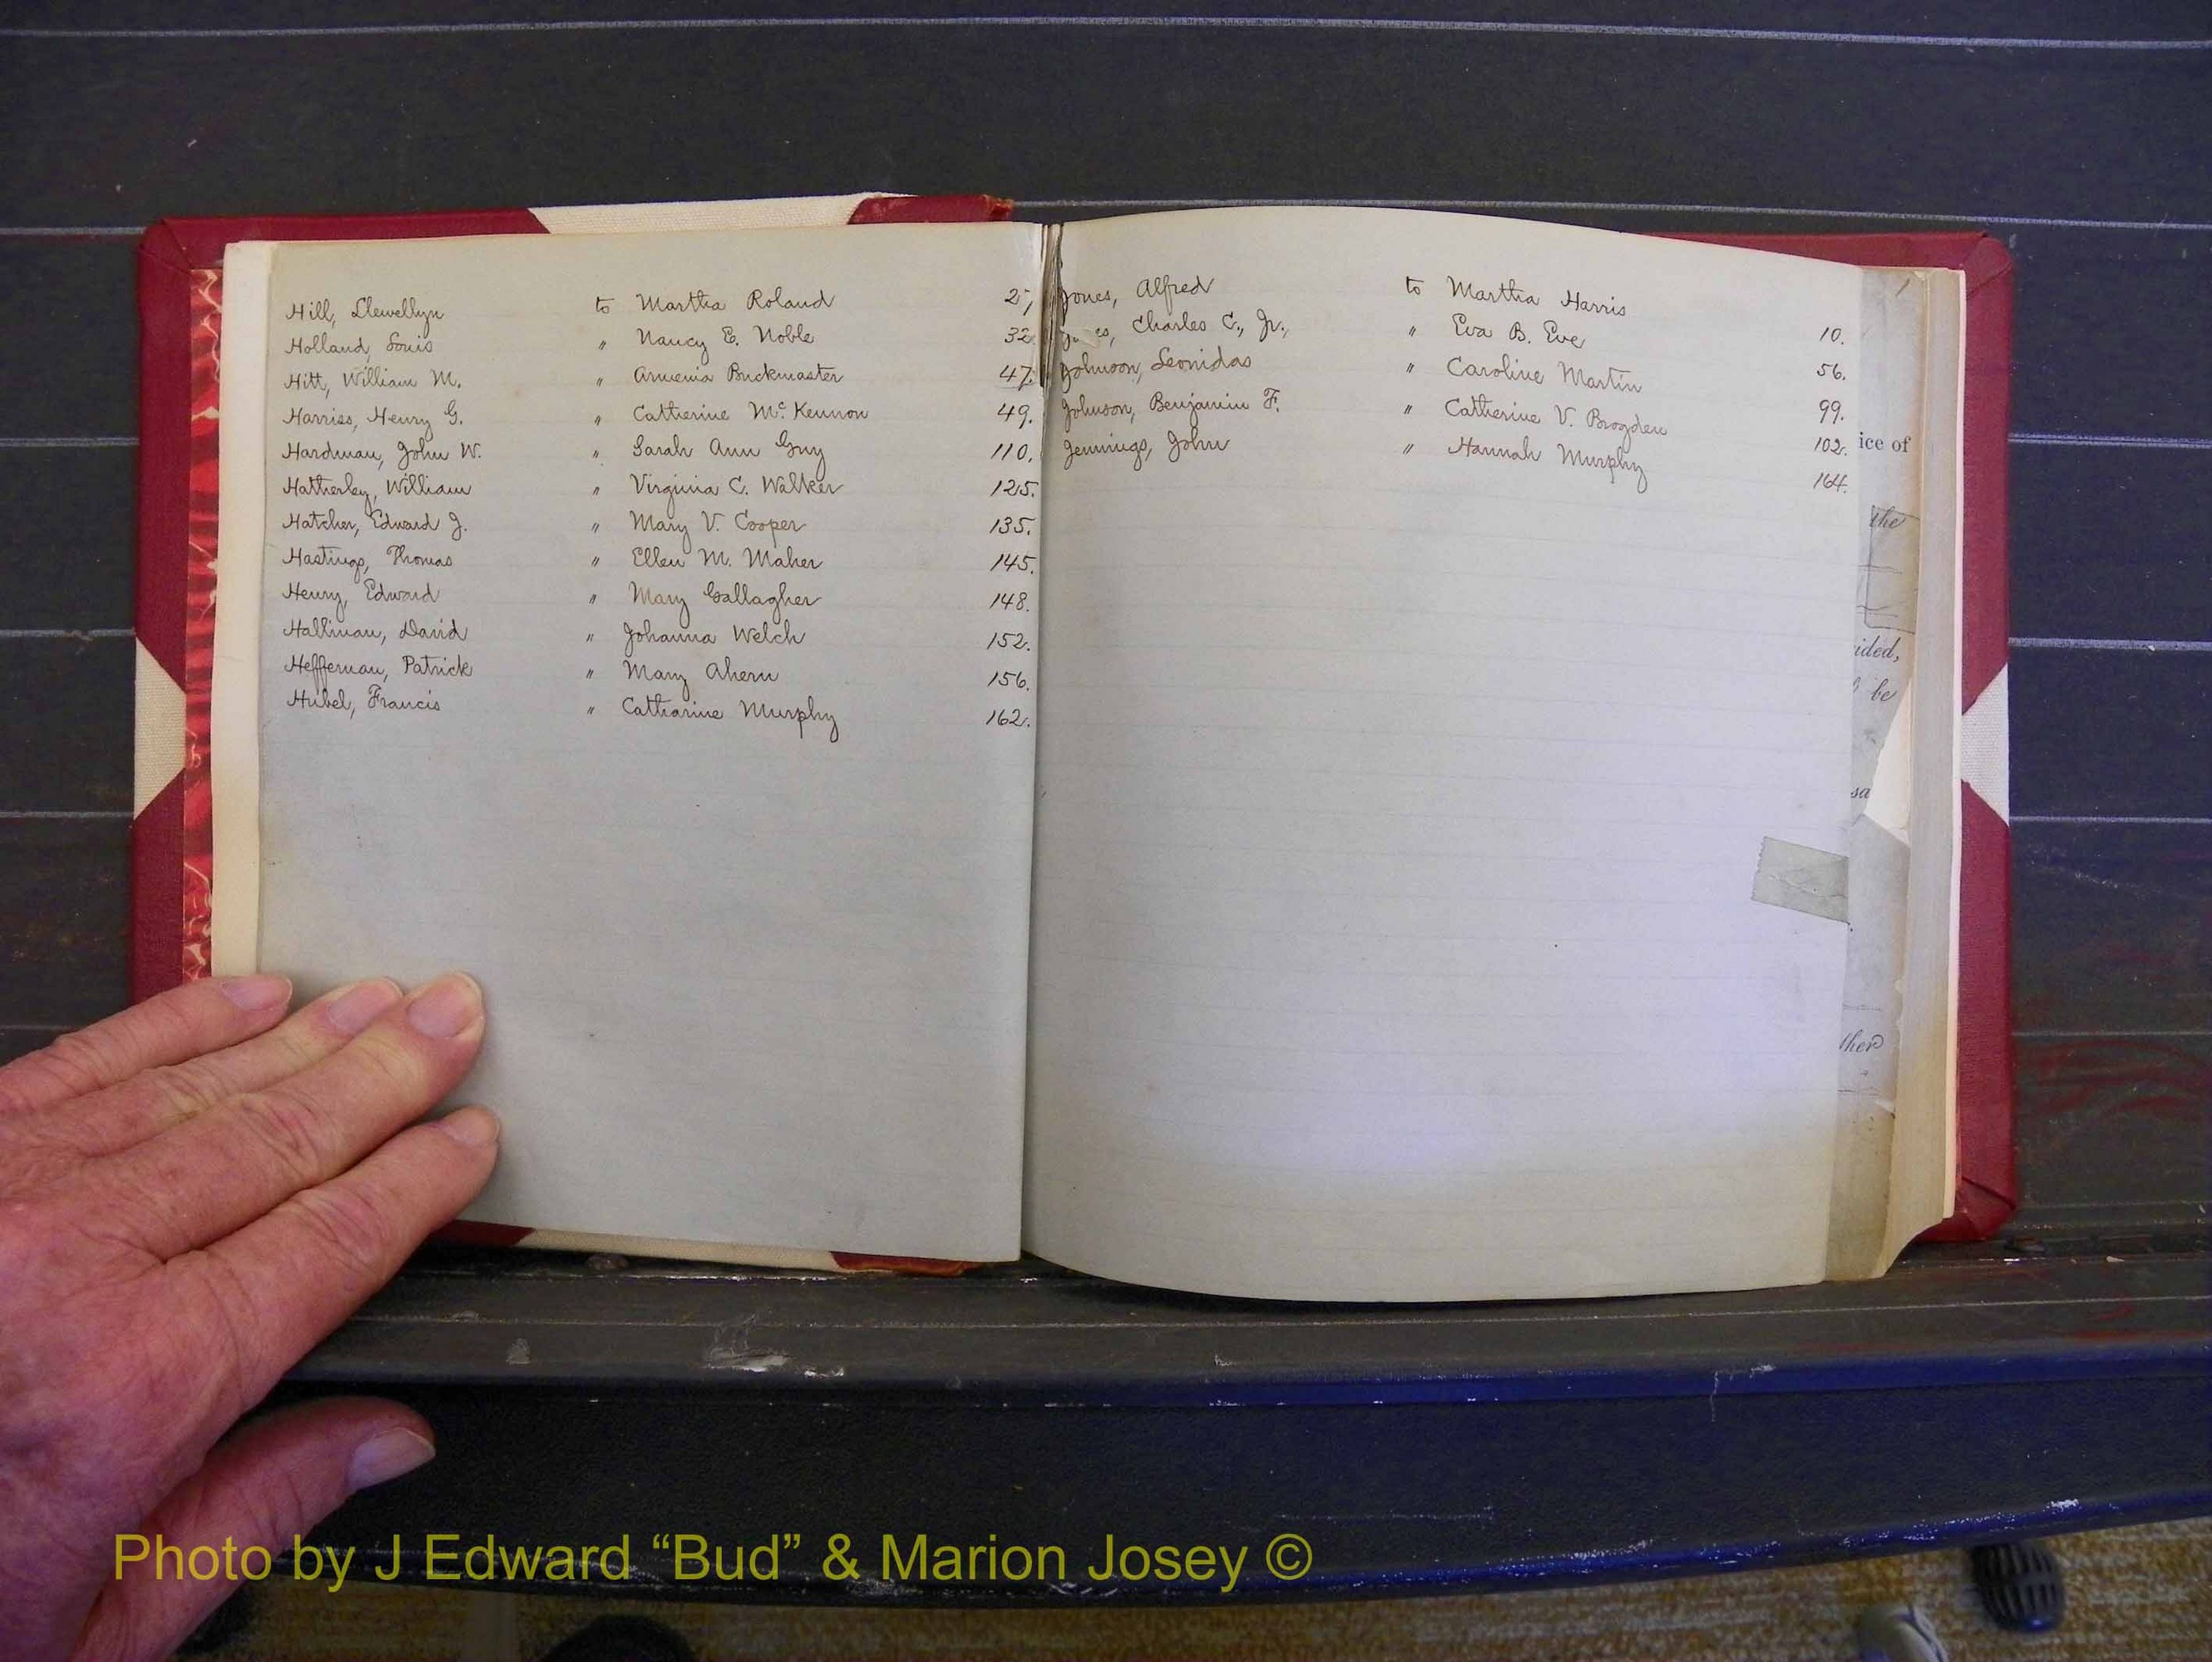 Hill, Llewellyn to Martha Roland 25,
Holland, Louis " Nancy E. Noble 32.
Hitt, William M. " Armenia Buckmaster 47.
Harriss, Henry G. " Catherine McKennon 49.
Hardman, John W. " Sarah Ann Guy 110.
Hatherley, William " Virginia C. Walker 125.
Hatcher, Edward J. " Mary V. Cooper 135.
Hastings, Thomas " Ellen M. Maher 145.
Henry, Edward " Mary Gallagher 148.
Hallinan, David " Johanna Welch 152.
Heffernan, Patrick " Mary Ahern 156.
Hubel, Francis " Catharine Murphy 162.
Jones, Alfred to Martha Harris 10.
Charles C., Jr., " Eva B. Eve 56.
Johnson, Leonidas " Caroline Martin 99.
Johnson, Benjamin F. " Catherine V. Brogden 102.
Jennings, John " Hannah Murphy 164.
ice of
the
ided,
be
sa
ther
Photo by J Edward “Bud” & Marion Josey ©